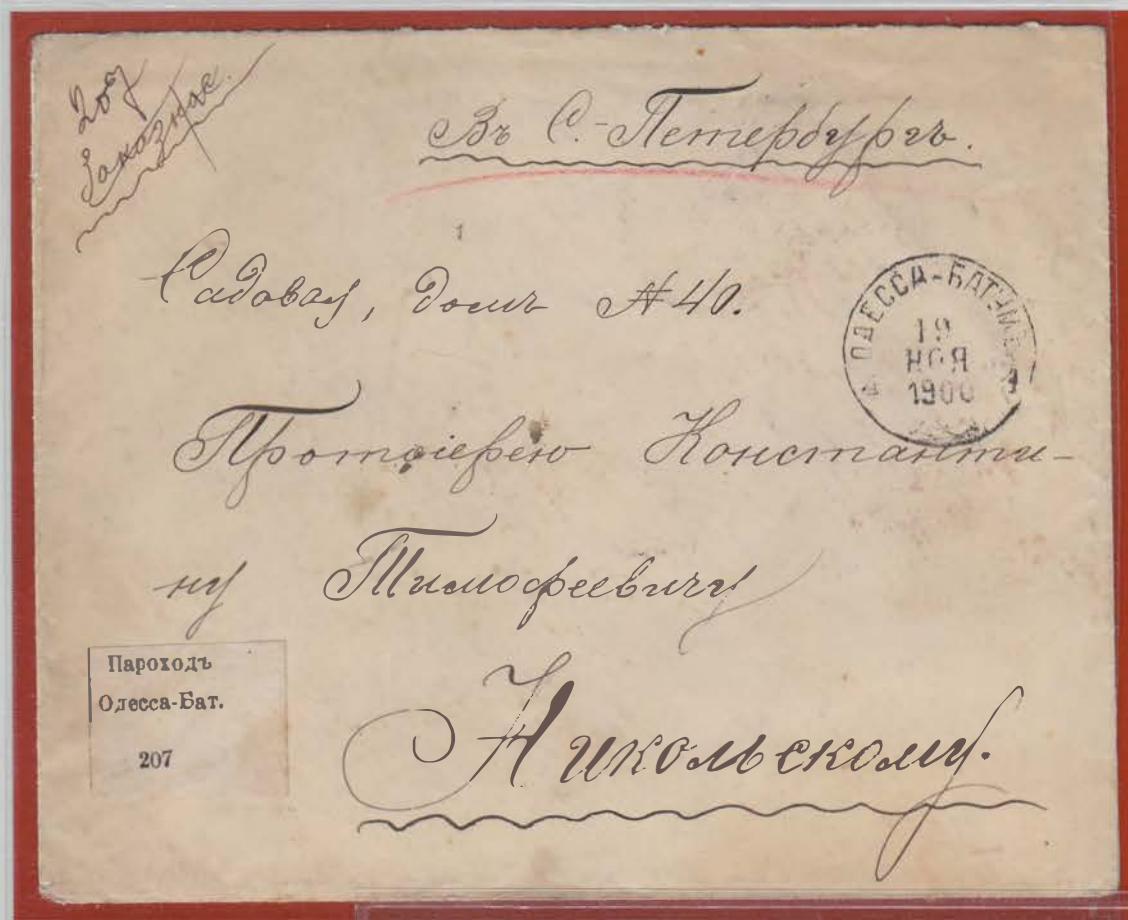 207
Заказное.
Въ С.-Петербургъ.
Садовая, домъ № 40.
ОДЕССА-БАТУМЪ
19
НОЯ
1900
Протоіерею Константи-
ну Тимофеевичу
Никольскому.
Пароходъ
Одесса-Бат.
207